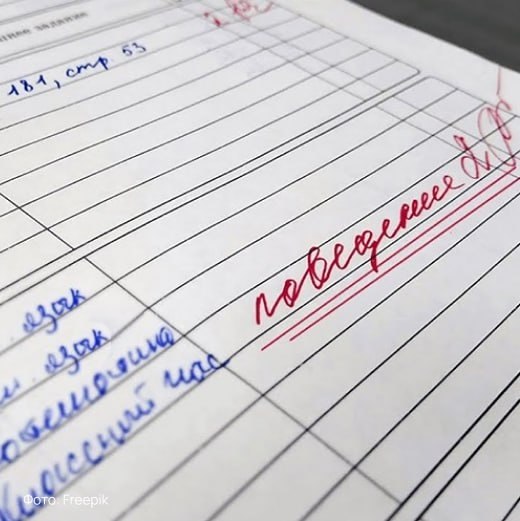 задание
181, стр 53
поведение 2
язык
язык
математика
Классный час
Фото: Freepik